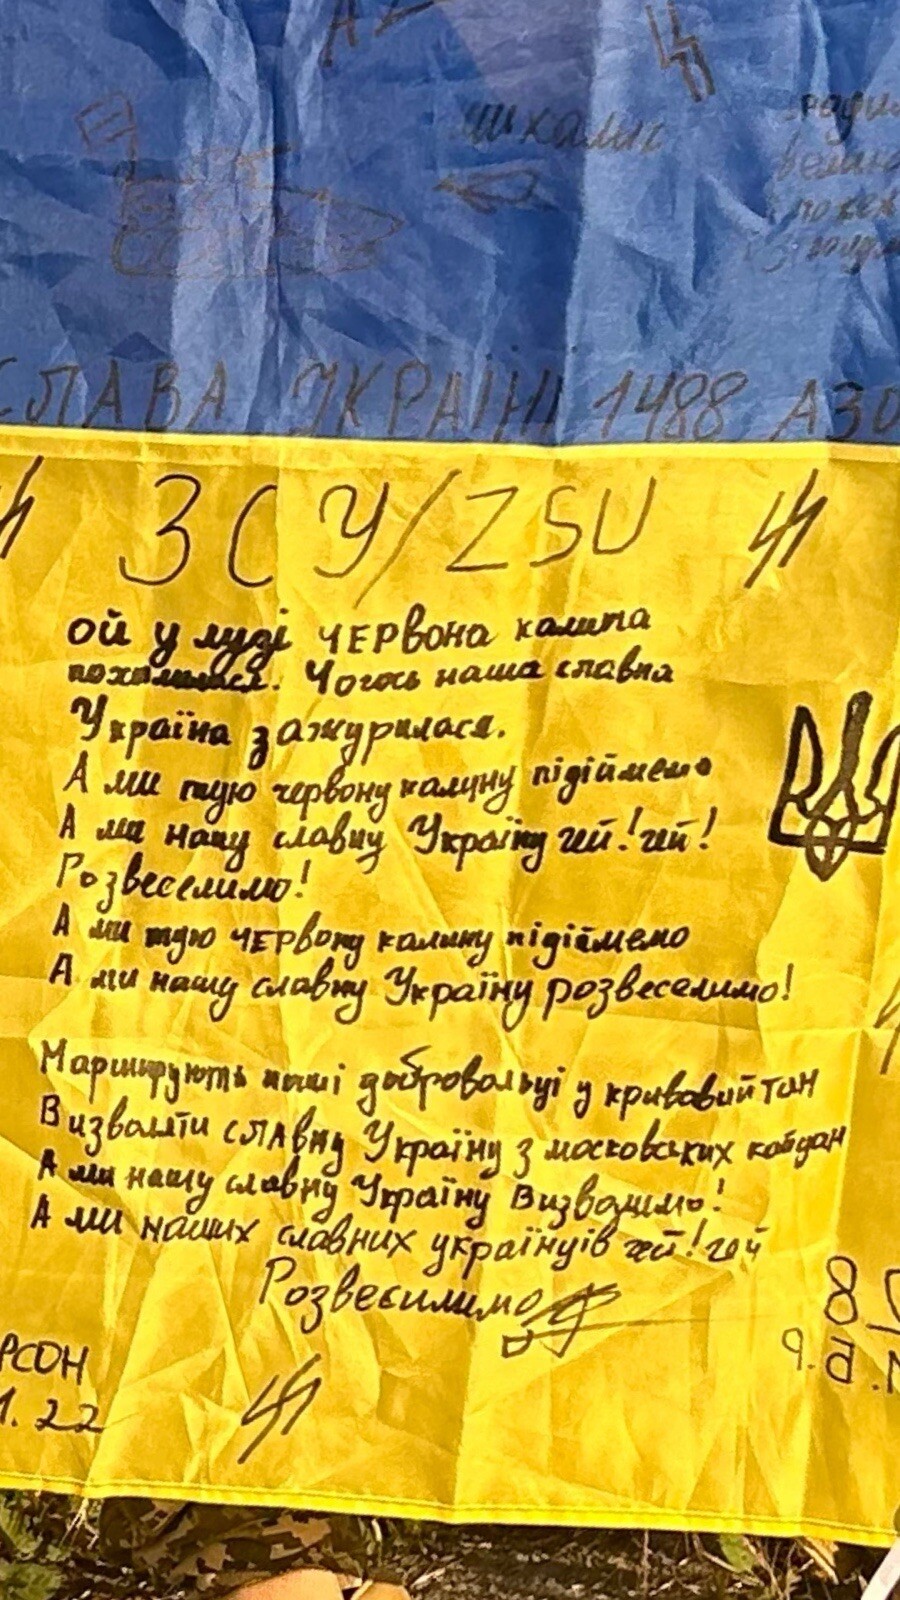 СЛАВА УКРАЇНІ 1488 АЗО
ЗСУ/ZSU
ой у лузі червона калина
похилилася. Чогось наша славна
Україна зажурилася.
А ми тую червону калину підіймемо
А ми нашу славну Україну гей! гей!
Розвеселимо!
А ми тую червону калину підіймемо
А ми нашу славну Україну розвеселимо!
Маршірують наші добровольці у кривавий тан
Визволяти славну Україну з московських кайдан
А ми нашу славну Україну Визволимо!
А ми наших славних українців гей! гей
Розвесилимо
РСОН
1.22